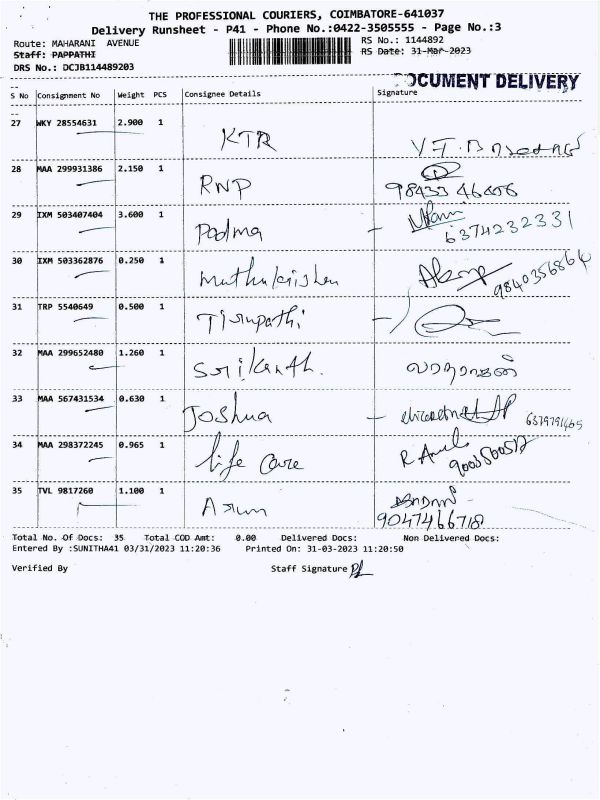 THE PROFESSIONAL COURIERS, COIMBATORE-641037
Delivery Runsheet - P41 - Phone No.:0422-3505555 - Page No.:3
Route: MAHARANI AVENUE
RS No.: 1144892
Staff: PAPPATHI
RS Date: 31-Mar-2023
DRS No.: DCJB114489203
DOCUMENT DELIVERY
S No Consignment No Weight PCS Consignee Details Signature
27 WKY 28554631 2.900 1 KTR
28 MAA 299931386 2.150 1 RNP
29 IXM 503407404 3.600 1 Padma 6374232331
30 IXM 503362876 0.250 1 Muthukrishnan 9840356864
31 TRP 5540649 0.500 1 Tirupathi
32 MAA 299652480 1.260 1 Srikanth.
33 MAA 567431534 0.630 1 Joshua 6379791465
34 MAA 298372245 0.965 1 life Care
35 TVL 9817260 1.100 1 Arun 9047466718
Total No. Of Docs: 35 Total COD Amt: 0.00 Delivered Docs: Non Delivered Docs:
Entered By :SUNITHA41 03/31/2023 11:20:36 Printed On: 31-03-2023 11:20:50
Verified By Staff Signature